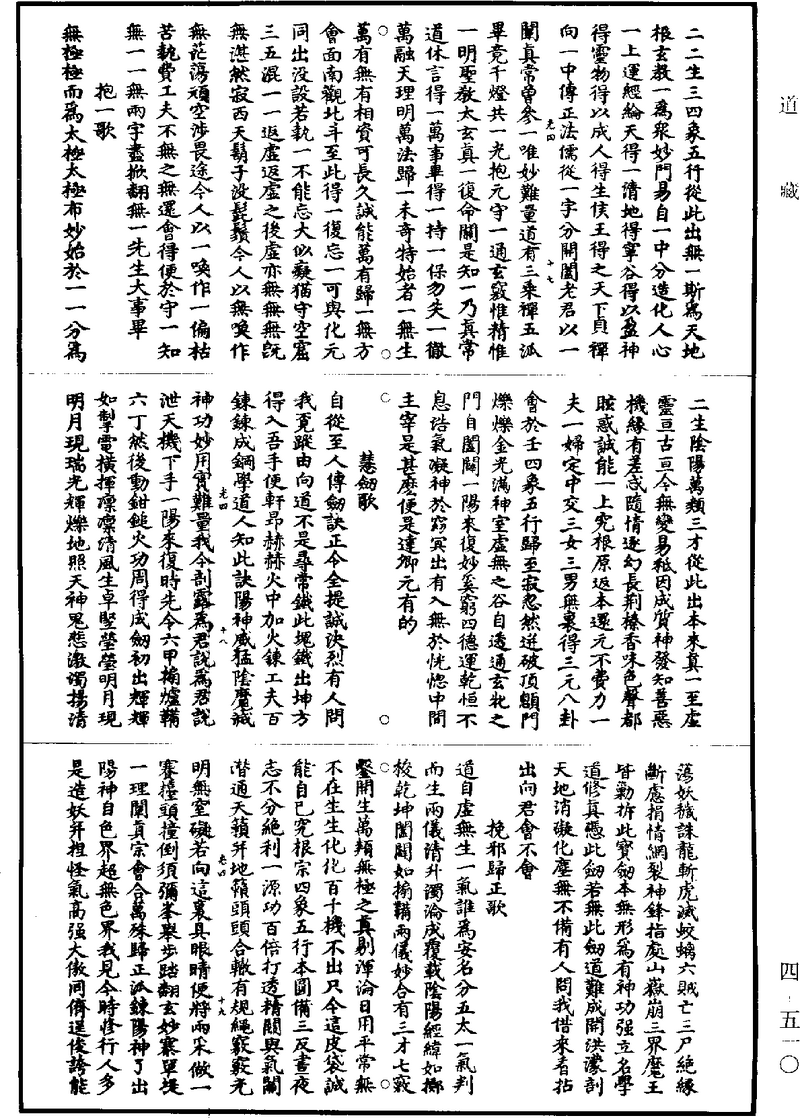 道藏
二二生三四象五行從此出無一斯為天地
根玄教一為眾妙門易自一中分造化人心
一上運經綸天得一清地得寧谷得以盈神
得靈物得以成人得生侯王得之天下貞禪
向一中傳正法儒從一字分開闔老君以一
闡真常曾參一唯妙難量道有三乘禪五派
畢竟千燈共一光抱元守一通玄竅惟精惟
一明聖教太玄真一復命關是知一乃真常
道休言得一萬事畢得一持一保勿失一徹
萬融天理明萬法歸一未奇特始者一無生
萬有無有相資可長久誠能萬有歸一無方
會面南觀北斗至此得一復忘一可與化元
同出沒設若執一不能忘大似癡猫守空窟
三五混一一返虛返虛之後虛亦無無無既
無湛然寂西天鬍子没髭鬚今人以無喚作
無茫蕩頑空涉畏途今人以一喚作一偏枯
苦執費工夫不無之無還會得便於守一知
無一一無兩字盡掀翻無一先生大事畢
抱一歌
無極極而為太極太極布妙始於一一分為
二生陰陽萬類三才從此出本來真一至虛
靈亘古亘今無變易秖因成質神發知善惡
機緣有差忒隨情逐幻長荊榛香味色聲都
眩惑誠能一上究根原返本還元不費力一
夫一婦定中交三女三男無裏得三元八卦
會於壬四象五行歸至寂忽然迸破頂顖門
爍爍金光滿神室虛無之谷自透通玄牝之
門自闔闢一陽來復妙奚窮四德運乾恒不
息浩氣凝神於窈冥出有入無於恍惚中間
主宰是甚麽便是達卿元有的
慧劒歌
自從至人傳劒訣正令全提誠決烈有人問
我覓蹤由向道不是尋常鐵此塊鐵出坤方
得入吾手便軒昂赫赫火中加火鍊工夫百
鍊鍊成鋼學道人知此訣陽神威猛陰魔滅
神功妙用實難量我今剖露為君說為君說
泄天機下手一陽來復時先令六甲搧爐鞴
六丁然後動鉗鎚火功周得成劒初出輝輝
如掣電橫揮凛凛清風生卓竪瑩瑩明月現
明月現瑞光輝爍地照天神鬼悲激濁揚清
蕩妖穢誅龍斬虎滅蛟螭六賊亡三尸絕緣
斷慮捐情網裂神鋒指處山嶽崩三界魔王
皆勦拆此寶劒本無形為有神功强立名學
道修真憑此劒若無此劒道難成開洪濛剖
天地消礙化塵無不備有人問我借來看拈
出向君會不會
挽邪歸正歌
道自虛無生一氣誰為安名分五太一氣判
而生兩儀清升濁淪成覆載陰陽經緯如擲
梭乾坤闔闢如搧鞴兩儀妙合有三才七竅
鑿開生萬類無極之真剔渾淪日用平常無
不在生生化化百千機不出只今這皮袋誠
能自己究根宗四象五行本圓備三反晝夜
志不分絕利一源功百倍打透精關與氣關
潛通天籟并地籟頭頭合轍有規繩竅竅光
明無窒礙若向這裏具眼睛便將兩采做一
賽擡頭撞倒須彌峯舉步踏翻玄妙寨單提
一理闡真宗會合萬殊歸正派鍊陽神了出
陽神自色界超無色界我見今時修行人多
是造妖并担怪氣高强大傲同儕逞俊誇能
四·五一〇